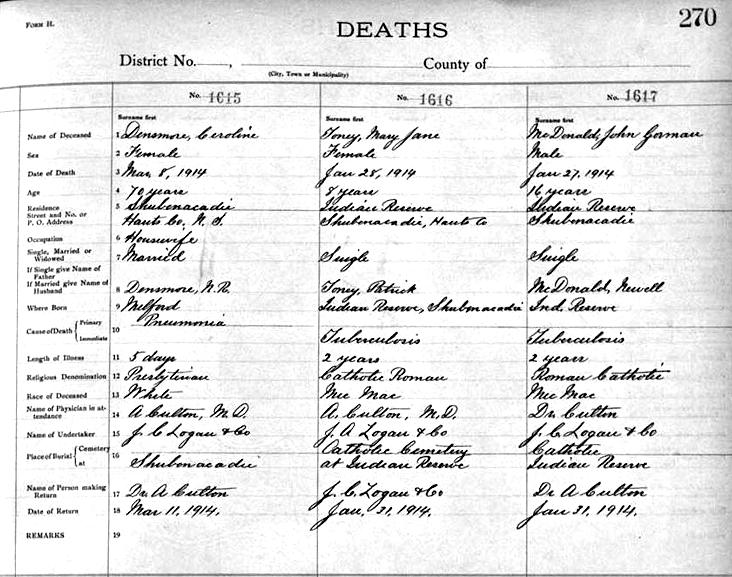 FORM H.
270
DEATHS
District No. , County of
(City, Town or Municipality)
No. 1615 No. 1616 No. 1617
Surname first Surname first Surname first
Name of Deceased 1 Densmore, Ceroline Toney, Mary Jane McDonald, John Gorman
Sex 2 Female Female Male
Date of Death 3 Mar, 8, 1914 Jan 28, 1914 Jan 27, 1914
Age 4 70 years 8 years 16 years
Residence 5 Shubenacadie Indian Reserve Indian Reserve
Street and No. or
P. O. Address Hants Co, N. S. Shubenacadie, Hants Co Shubenacadie
Occupation 6 Housewife
Single, Married or
Widowed 7 Married Single Single
If Single give Name of
Father
If Married give Name of
Husband 8 Densmore, N.R. Toney, Patrick McDonald, Newell
Where Born 9 Melford Indian Reserve, Shubenacadie Ind. Reserve
Cause of Death Primary Pneumonia
Immediate 10 Tuberculosis Tuberculosis
Length of Illness 11 5 days 2 years 2 years
Religious Denomination 12 Presbyterian Catholic Roman Roman Catholic
Race of Deceased 13 White Mic Mac Mic Mac
Name of Physician in at-
tendance 14 A Culton, M.D. A. Culton, M.D. Dr. Cutton
Name of Undertaker 15 J. C Logan & Co J. A Logan & Co J. C Logan & Co
Place of Burial Cemetery
at 16 Shubenacadie Catholic Cemetery at Indian Reserve Catholic Indian Reserve
Name of Person making
Return 17 Dr. A Cutton J. C. Logan & Co Dr A Culton
Date of Return 18 Mar 11, 1914. Jan, 31, 1914. Jan 31, 1914.
REMARKS 19